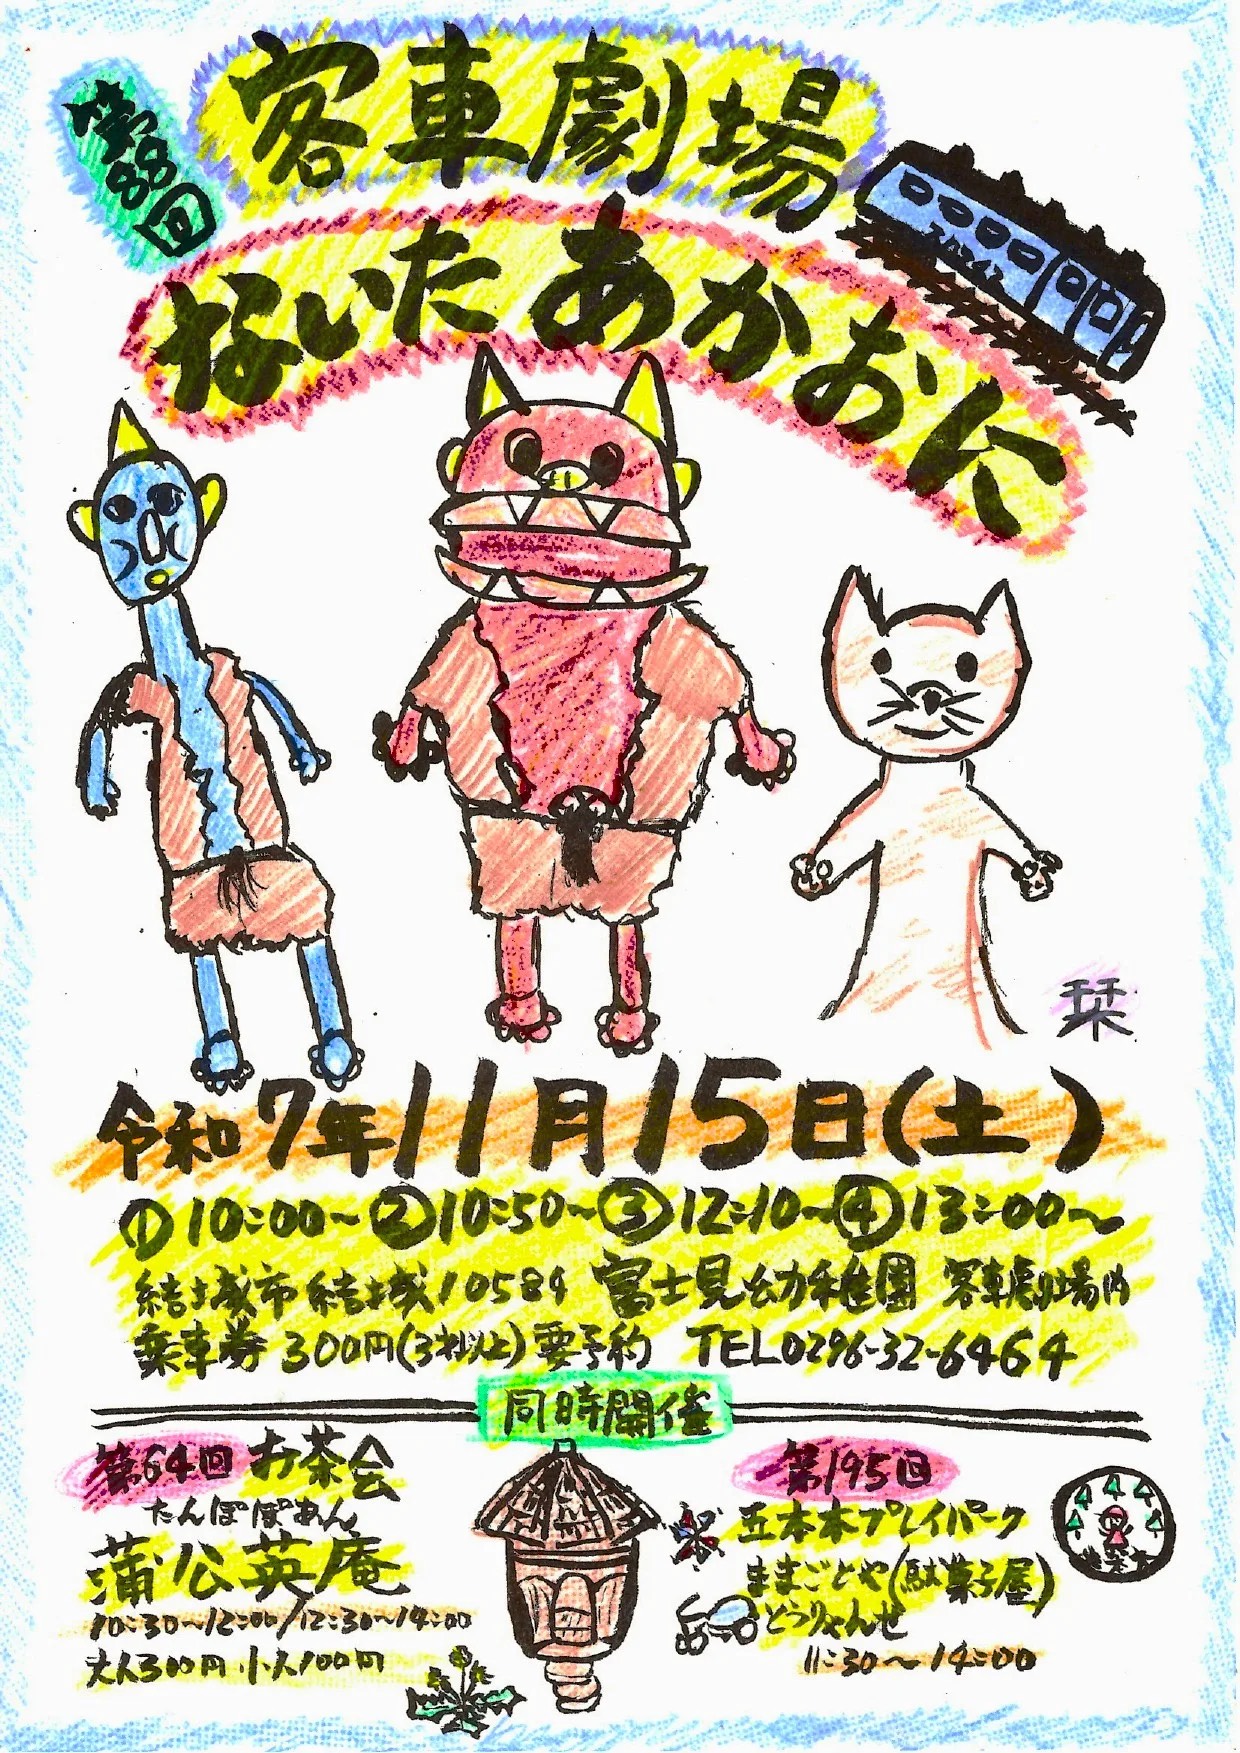 第88回
客車劇場
ないたあかおに
栞
令和7年11月15日(土)
①10:00～②10:50～③12:10～④13:00～
結城市結城10584 富士見幼稚園 客車劇場内
乗車券 300円(3才以上)要予約 TEL0296-32-6464
同時開催
第64回 お茶会
たんぽぽあん
蒲公英庵
10:30～12:00/12:30～14:00
大人300円 小人100円
第195回
五本木プレイパーク
ままごとや(駄菓子屋)
とうりゃんせ
11:30～14:00